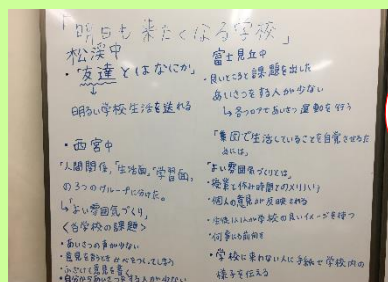 「明日も来たくなる学校」
松渓中
・「友達とはなにか」
↓
明るい学校生活を送れる
・西宮中
「人間関係」「生活面」「学習面」
の3つのグループに分けた。
↳「よい雰囲気づくり」
〈各学校の課題〉
・あいさつの声が小さい
・意見を言うとき かべをつくってしまう
・ふざけて意見を書く
・自分からあいさつをする人が少ない
富士見丘中
・良いところと課題を出した
あいさつをする人が少ない
↳各クラブであいさつ運動を行う
「集団で生活していることを自覚させるた
めには」
「よい雰囲気づくりとは」
・授業と休み時間でのメリハリ
・個人の意見が反映される
・生徒1人1人が学校の良いイメージを持つ
・何事にも前向き
・学校に来れない人に手紙で学校内の
様子を伝える